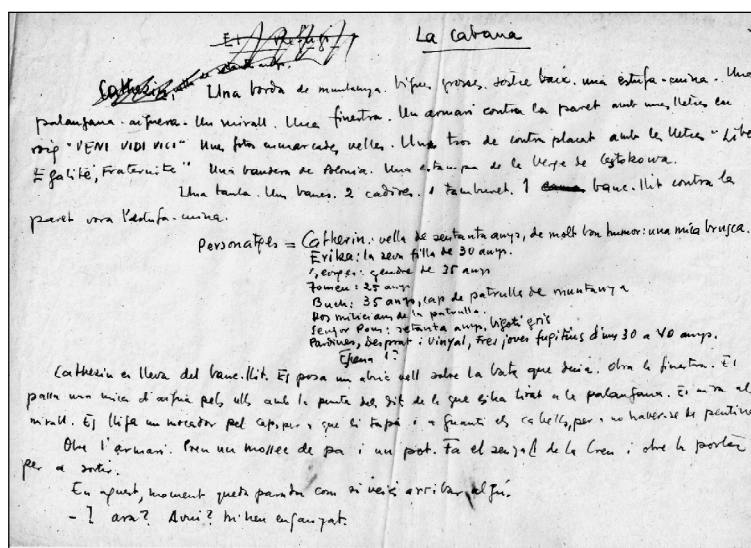 La cabana
Catherin. Una borda de muntanya. Bigues groses. Sostre baix. una estufa-cuina. Una
palangana-aigüera. Un mirall. Una finestra. Un armari contra la paret amb unes lletres en
roig "VENI VIDI VICI" Unes fotos enmarcades, velles. Un tros de contra placat amb les lletres "Liberté
Egalité, Fraternite" Una bandera de Polonia. Una estampa de la Verge de
Una taula. Un banc. 2 cadires. 1 tamburet. 1 banc-llit contra la
paret vora l'estufa-cuina.
Personatges = Catherin: vella de setanta anys, de molt bon humor: una mica brusca.
Erika: la seva filla de 30 anys.
gendre de 35 anys
25 anys
Buch: 35 anys, cap de patrulla de muntanya
Dos milicians de la patrulla.
Senyor Pons: setanta anys, bigoti gris
Pardines, Desprat i Vinyal, tres joves fugitius d'uns 30 a 40 anys.
Catherin es lleva del banc-llit. Es posa un abric vell sobre la bata que duia. Obra la finestra. Es
passa una mica d'aigua pels ulls amb la punta del dit de la que s'ha tirat a la palangana. Es mira al
mirall. Es lliga un mocador pel cap, per a que li tapi i a guanti els cabells, per a no haverse de pentinar
Obre l'armari. Pren un mossec de pa i un pot. Fa el senyal de la Creu i obre la porta
per a sortir.
En aquest, moment queda parada com si veiés arribar algú.
- I ara? Avui? M'heu enganyat.